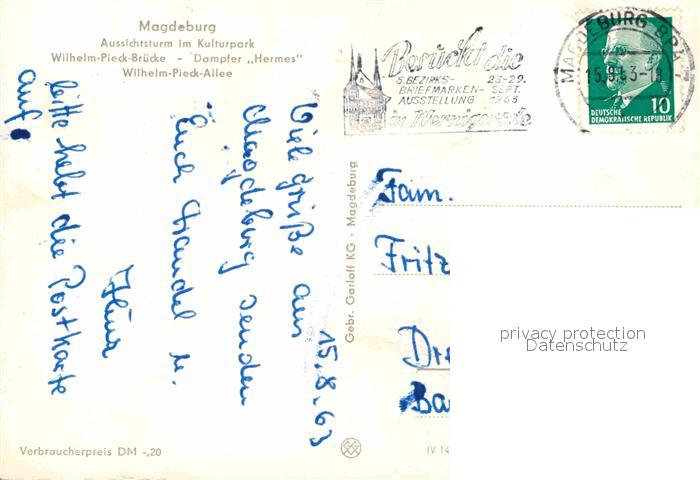 Magdeburg
Aussichtsturm im Kulturpark
Wilhelm-Pieck-Brücke - Dampfer „Hermes"
Wilhelm-Pieck-Allee
15.8.63
Viele Grüße aus
Magdeburg senden
Euch u.
bitte hebt die Postkarte
auf
Verbraucherpreis DM -,20
Gebr. Garloff KG - Magdeburg
IV 14
Besucht die
5. BEZIRKS- 23-29.
BRIEFMARKEN- SEPT.
AUSSTELLUNG 1963
in Wernigerode
MAGDEBURG BPA
15.8.63-18
10
DEUTSCHE
DEMOKRATISCHE REPUBLIK
Fam.
Fritz
Dre
Ba
privacy protection
Datenschutz